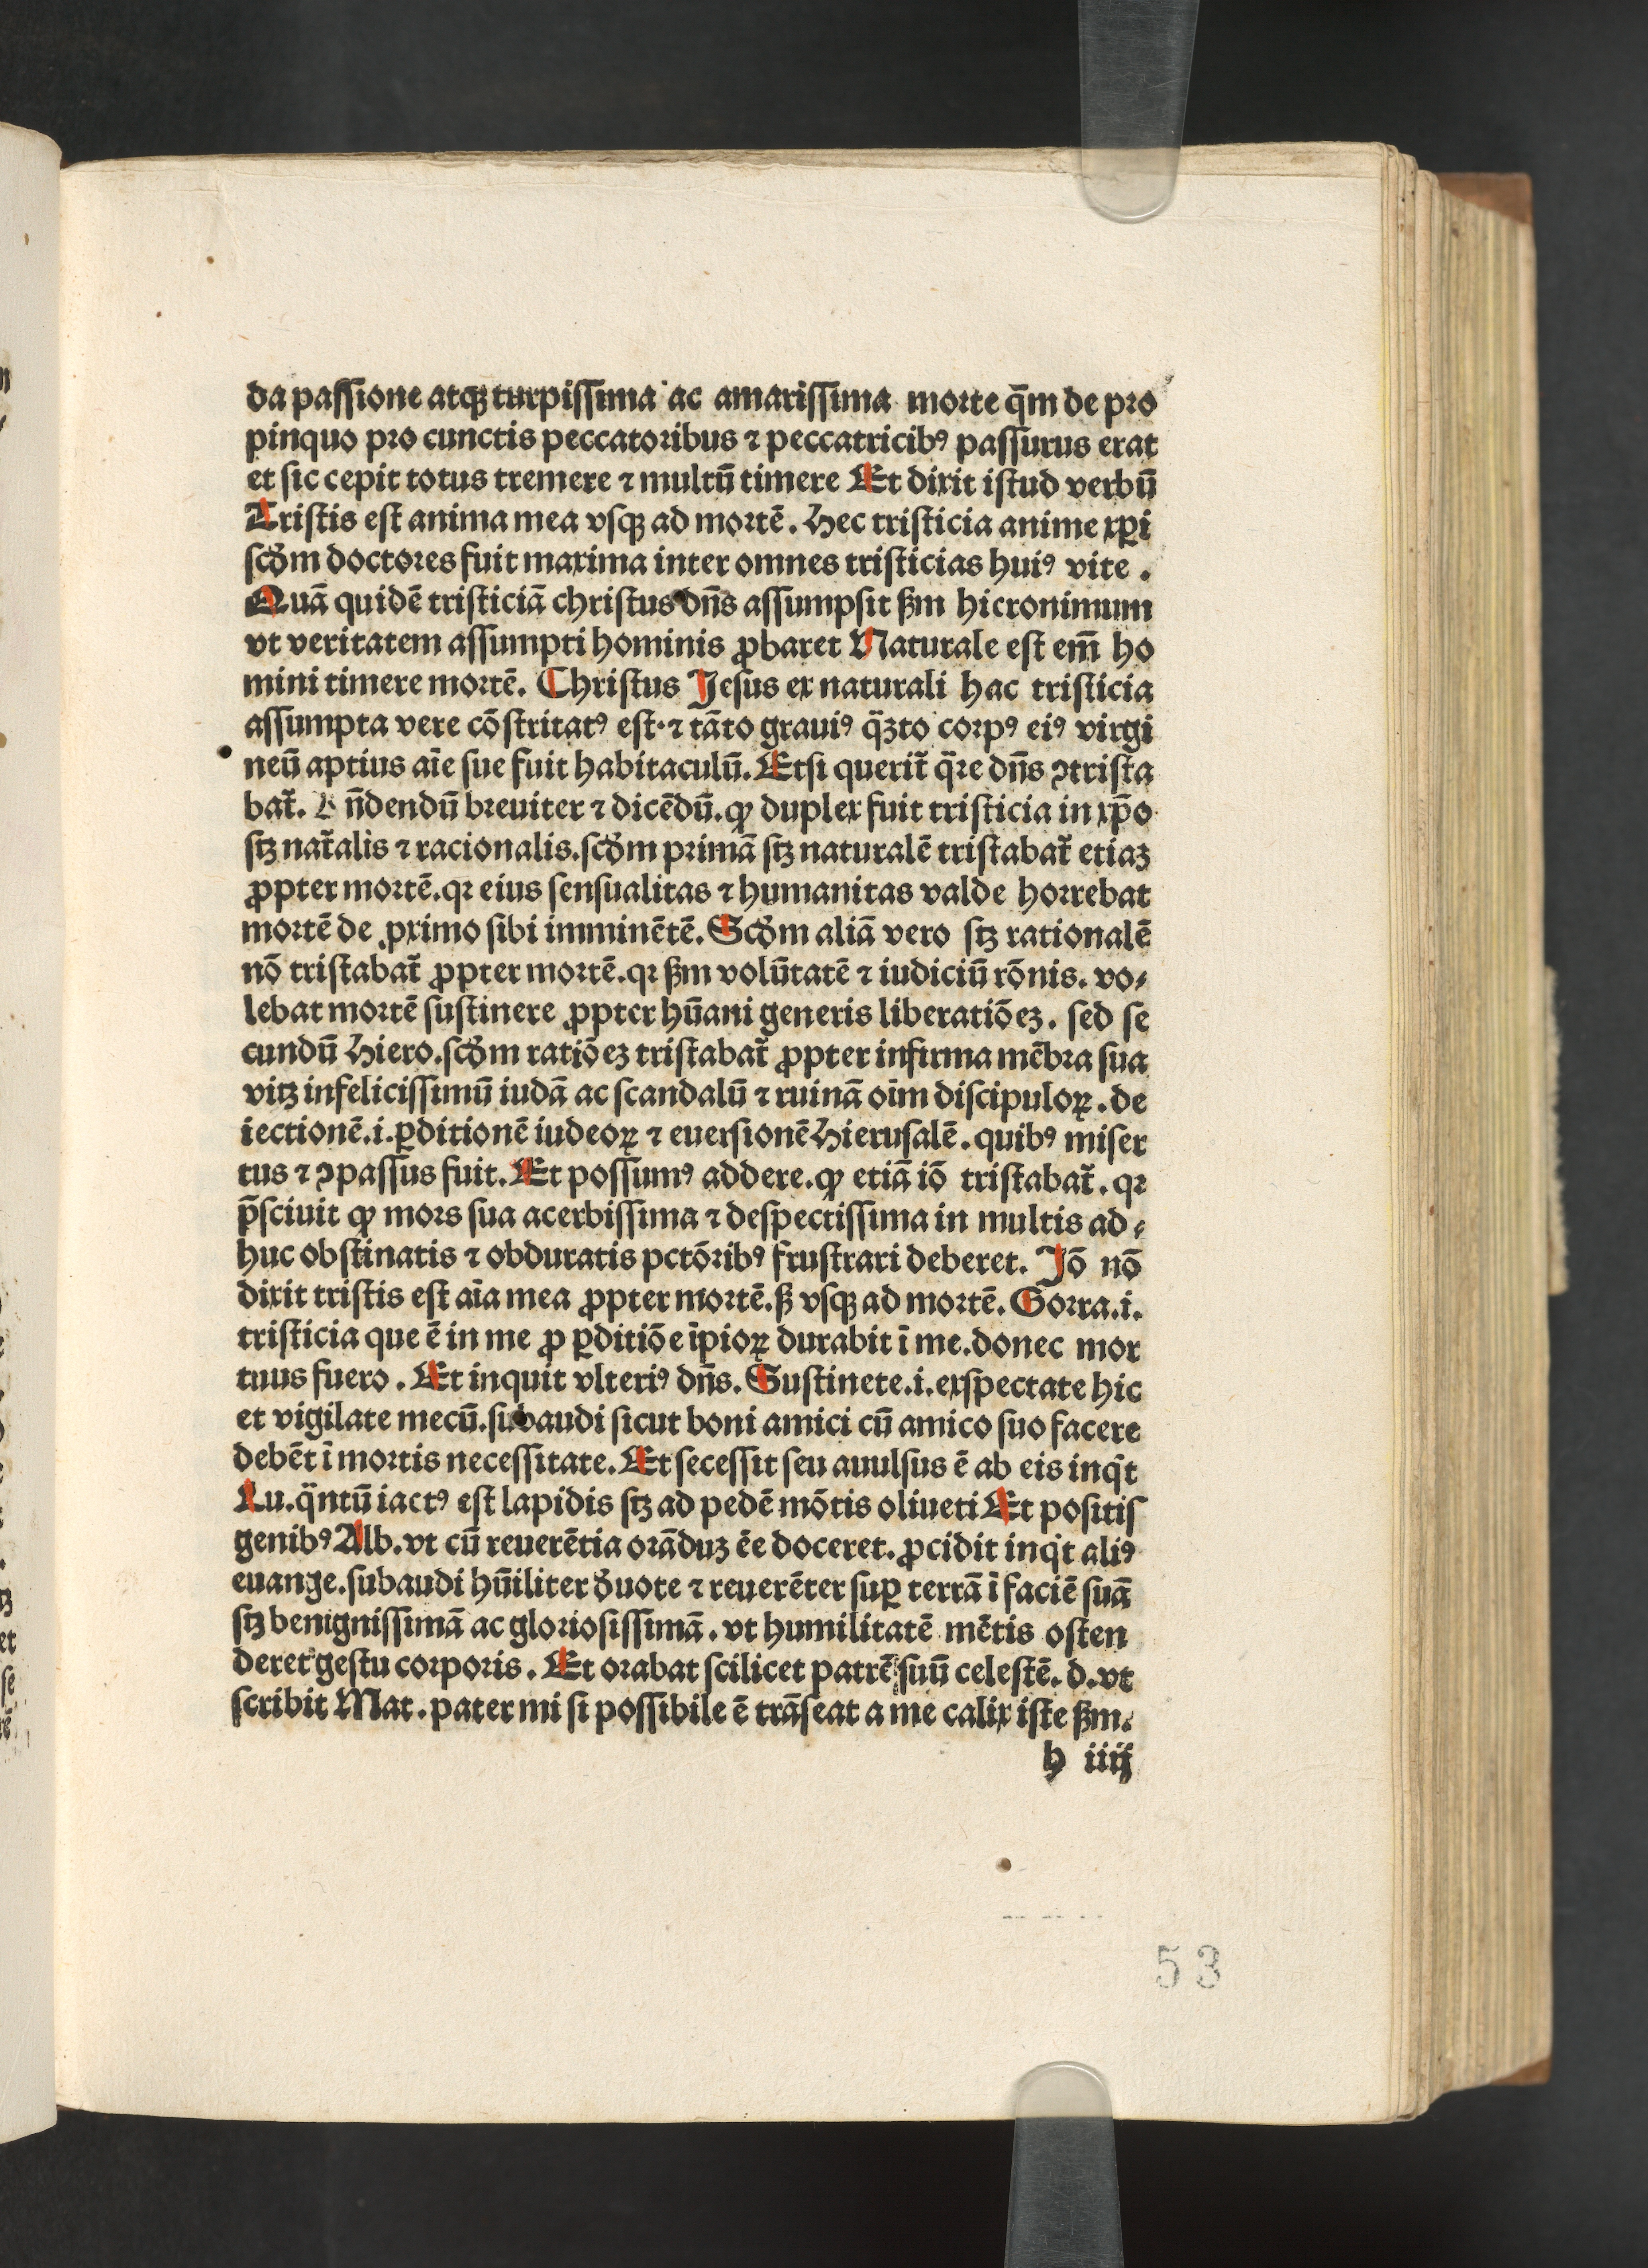 da passione atqꝫ turpissima ac amarissima morte q̄m de pro
pinquo pro cunctis peccatoribus ⁊ peccatricibꝰ passurus erat
et sic cepit totus tremere ⁊ multū timere Et dixit istud verbū
Tristis est anima mea vsqꝫ ad mortē. Hec tristicia anime xp̄i
scd̓m doctores fuit maxima inter omnes tristicias huiꝰ vite.
Quā quidē tristiciā christus dn̄s assumpsit ẜm hieronimum
vt veritatem assumpti hominis ꝓbaret Naturale est em̄ ho
mini timere mortē. Christus Jesus ex naturali hac tristicia
assumpta vere cōstritatꝰ est. ⁊ tāto grauiꝰ q̄ꝫto corpꝰ eiꝰ virgi
neū aptius aīe sue fuit habitaculū. Etsi querit̄ q̄re dn̄s ꝯtrista
bat̄. n̄dendū breuiter ⁊ dicēdū. ꝙ duplex fuit tristicia in xp̄o
stꝫ nat̄alis ⁊ racionalis. scd̓m primā stꝫ naturalē tristabat̄ etiaꝫ
ꝓpter mortē. qꝛ eius sensualitas ⁊ humanitas valde horrebat
mortē de ꝓximo sibi imminētē. Scd̓m aliā vero stꝫ rationalē
nō tristabat̄ ꝓpter mortē. qꝛ ẜm volūtatē ⁊ iudiciū rōnis. vo⸗
lebat mortē sustinere ꝓpter hūani generis liberatiōeꝫ. sed se
cundū Hiero. scd̓m ratiōeꝫ tristabat̄ ꝓpter infirma mēbra sua
vitꝫ infelicissimū iudā ac scandalū ⁊ ruinā oīm discipuloꝝ. de
iectionē. i. ꝑditionē iudeoꝝ ⁊ euersionē Hierusalē. quibꝰ miser
tus ⁊ ꝯpassus fuit. Et possumꝰ addere. ꝙ etiā iō tristabat̄. qꝛ
p̄sciuit ꝙ mors sua acerbissima ⁊ despectissima in multis ad⸗
huc obstinatis ⁊ obduratis pctōribꝰ frustrari deberet. Jō nō
dixit tristis est aīa mea ꝓpter mortē. ẜ vsqꝫ ad mortē. Gorra. i.
tristicia que ē in me ꝓ ꝑditiōe īpioꝝ durabit ī me. donec mor
tuus fuero. Et inquit vlteriꝰ dn̄s. Sustinete. i. exspectate hic
et vigilate mecū. subaudi sicut boni amici cū amico suo facere
debēt ī mortis necessitate. Et secessit seu auulsus ē ab eis inq̇t
Lu. q̄ntū iactꝰ est lapidis stꝫ ad pedē mōtis oliueti Et positis
genibꝰ Alb. vt cū reuerētia orāduꝫ ēe doceret. ꝓcidit inq̇t aliꝰ
euange. subaudi hūiliter d̓uote ⁊ reuerēter suꝑ terrā ī faciē suā
stꝫ benignissimā ac gloriosissimā. vt humilitatē mētis osten
deret gestu corporis. Et orabat scilicet patrē suū celestē. d. vt
scribit Mat. pater mi si possibile ē trāseat a me calix iste ẜm.
h iiij
53